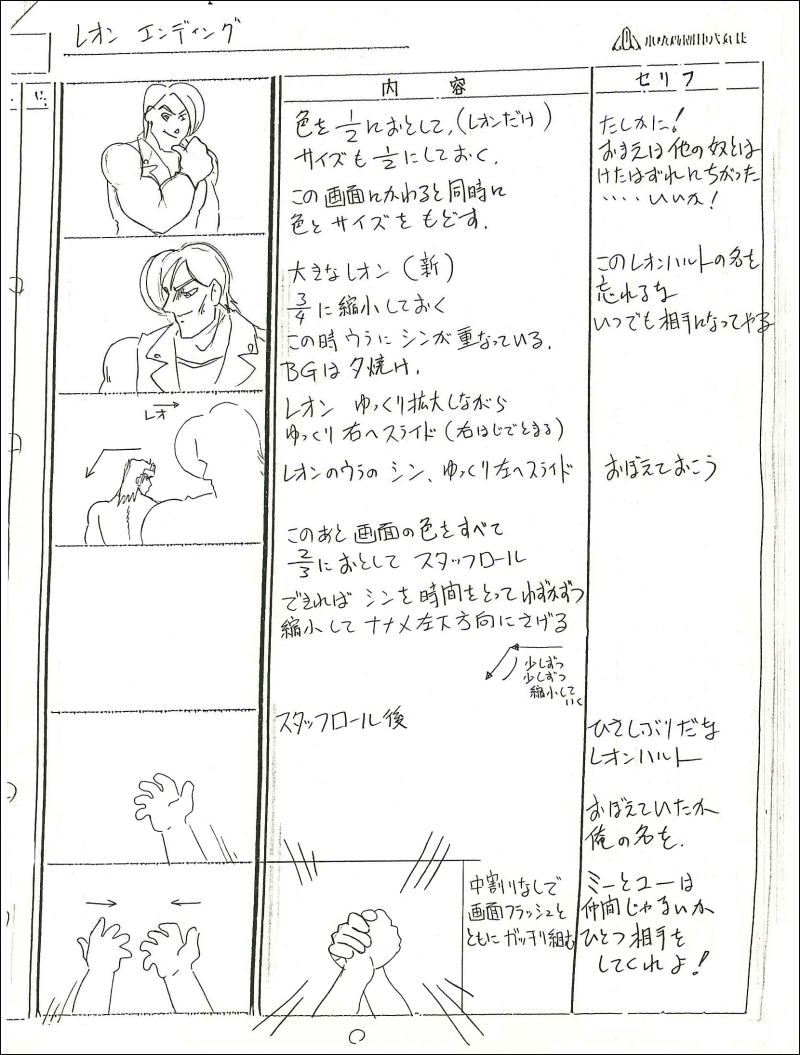 レオン エンディング
内容
セリフ
色を 1/2 におとして,(レオンだけ)
サイズも 1/2 にしておく.
この 画面にかわると同時に
色と サイズを もどす.
たしかに!
おまえは 他の奴とは
けたはずれに ちがった
‥‥ いいか!
大きなレオン (新)
3/4 に縮小しておく
この時 ウラに シンが 重なっている.
BGは 夕焼け.
このレオンハルトの名を
忘れるな
いつでも 相手になってやる
レオ
レオン ゆっくり拡大しながら
ゆっくり 右へスライド (右はじでとまる)
レオンのウラの シン、ゆっくり左へスライド
おぼえておこう
このあと 画面の色をすべて
2/3 におとして スタッフロール
できれば シンを 時間をとって わずかずつ
縮小して ナナメ左下方向にさげる
少しずつ
少しずつ
縮小して
いく
スタッフロール後
ひさしぶりだな
レオンハルト
おぼえていたか
俺の名を.
中割りなしで
画面フラッシュと
ともに ガッチリ組む
ミーとユーは
仲間じゃないか
ひとつ 相手を
してくれよ!